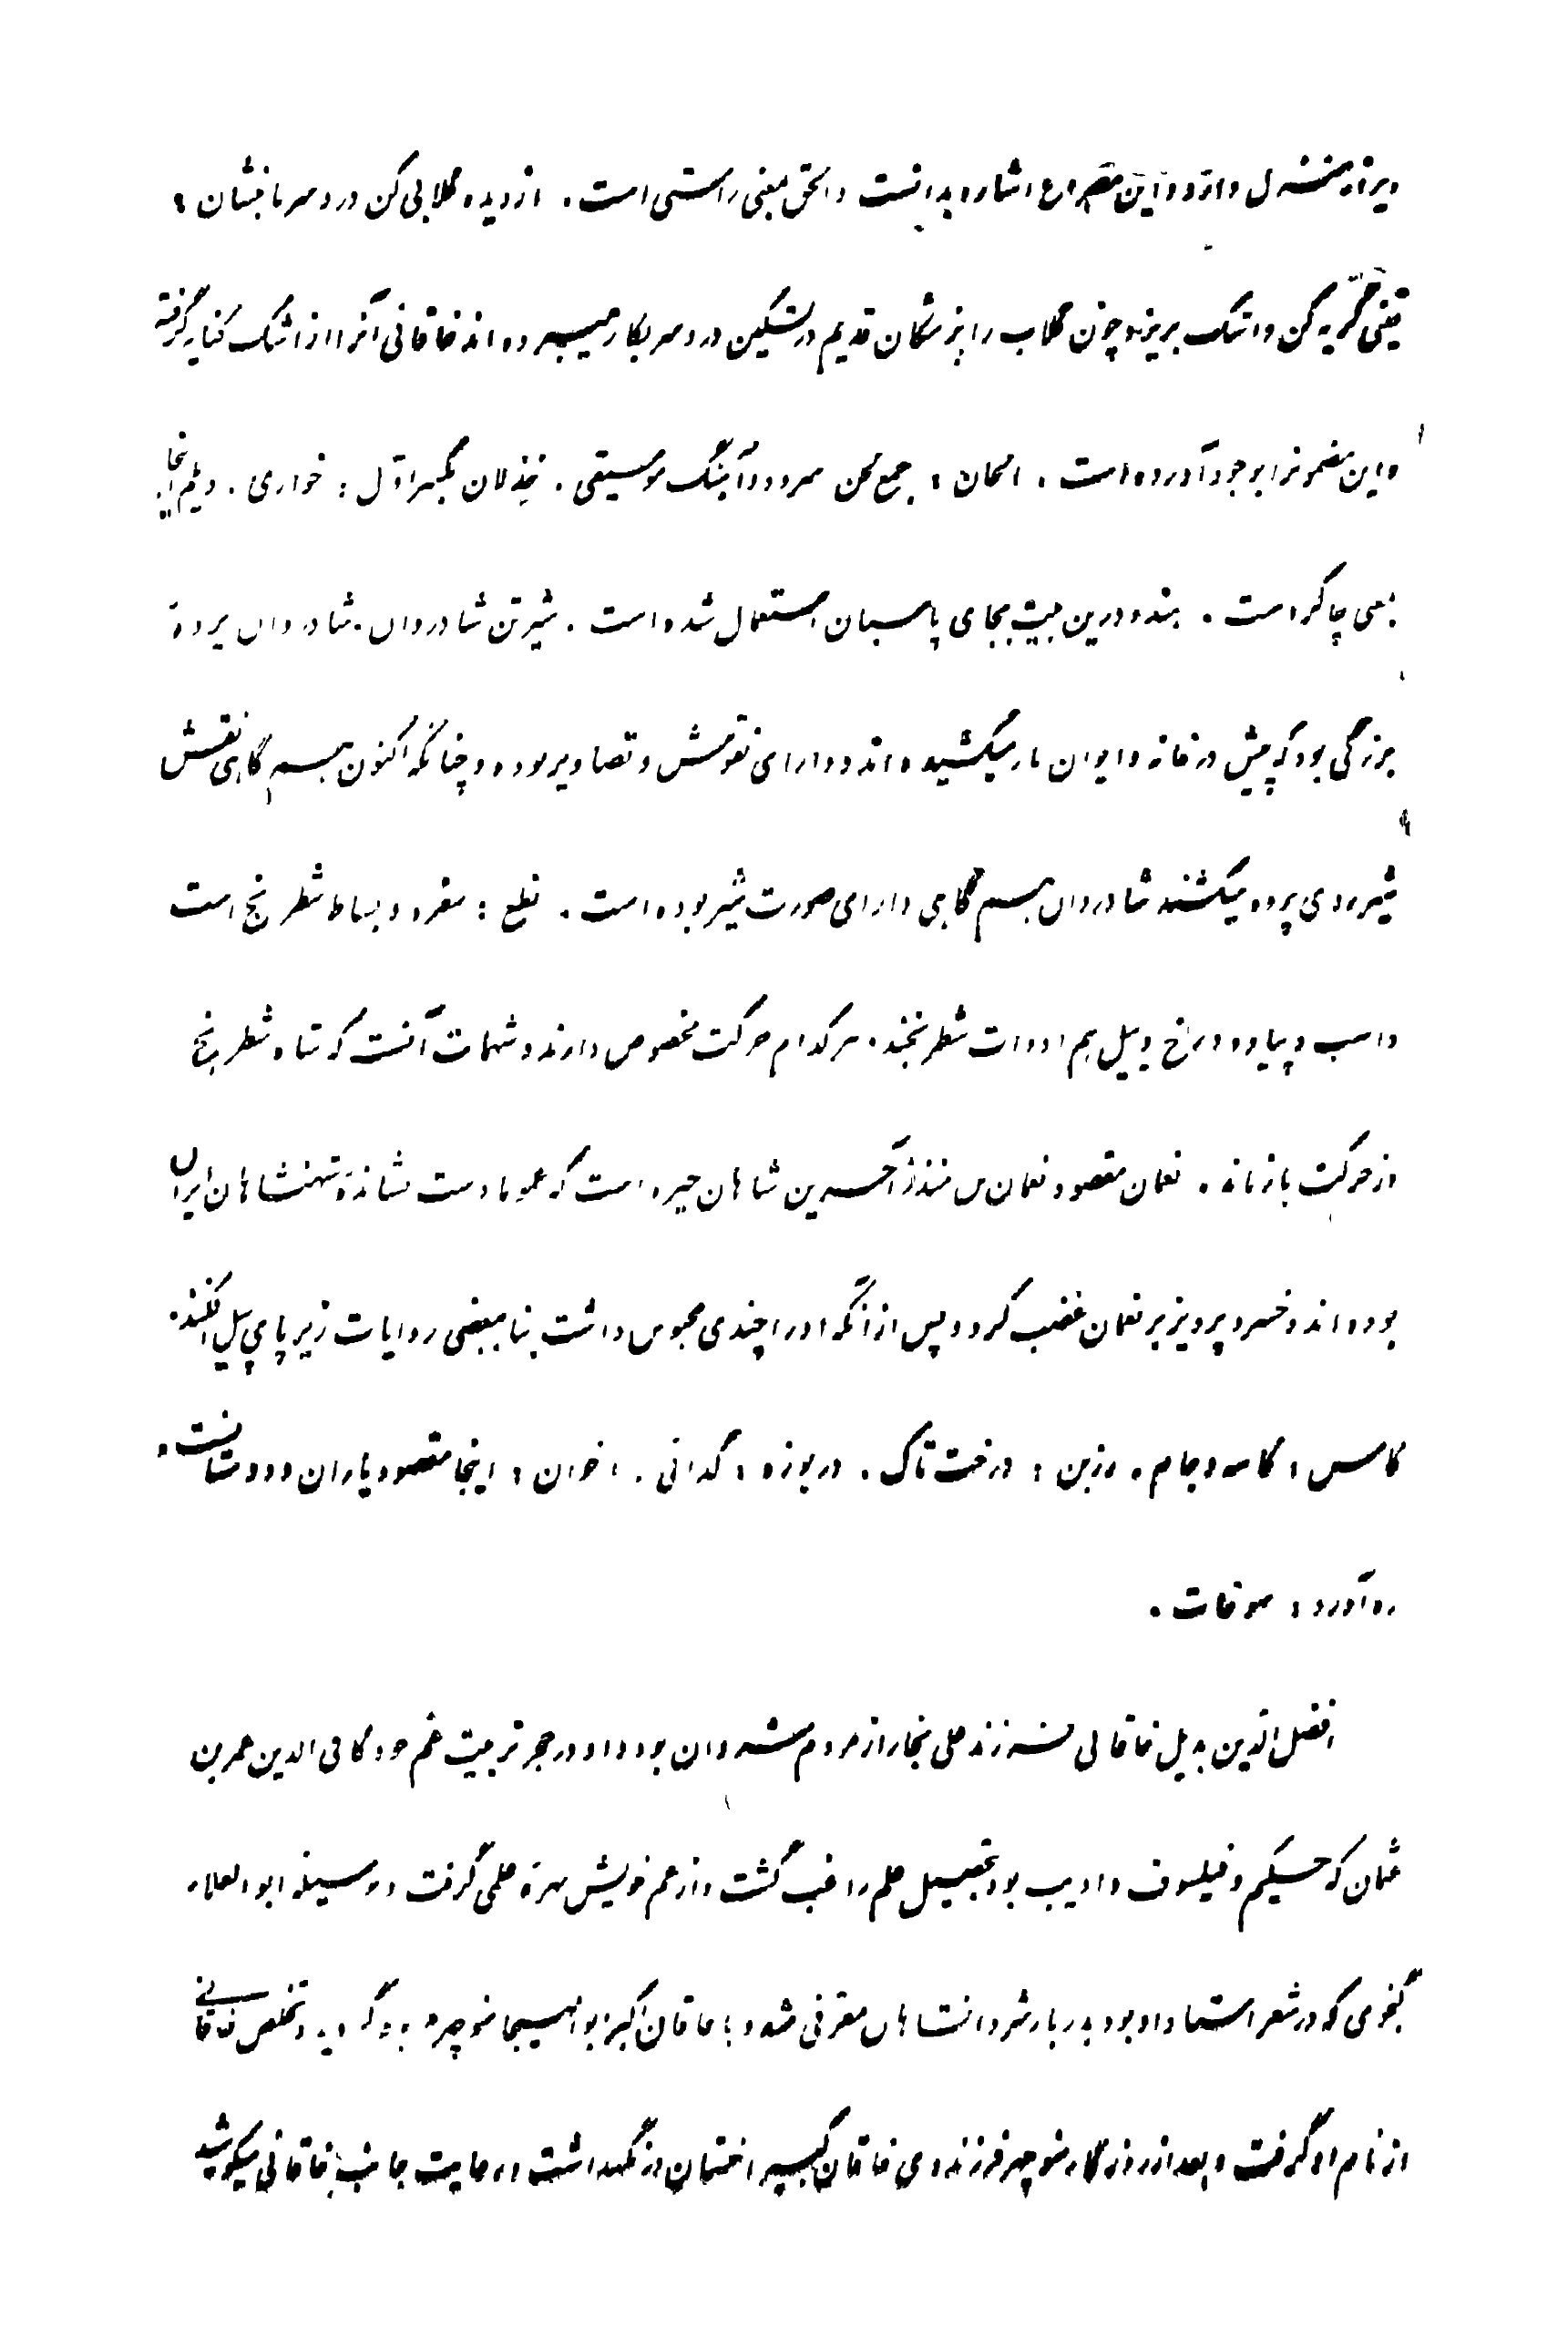 ویرانه منزل دارد و این مصراع اشاره بدانست و الحق بمعنی راستی است . از دیده گلابی کن درد سر ما بنشان :
یعنی گریه کن و اشک بریز و چون گلاب را پزشکان قدیم در تسکین درد سر بکار میبرده اند خاقانی آنرا از اشک کنایه گرفته
و این مضمونرا بوجود آورده است . الحان : جمع لحن سرود و آهنگ موسیقی . خذلان بکسر اول : خواری . دیلم اینجا
بمعنی چاکر است . هندو درین بیت بجای پاسبان استعمال شده است . شیر تن شادروان . شادروان پردهٔ
بزرگی بود که پیش در خانه و ایوان ها میکشیده اند و دارای نقوش و تصاویر بوده و چنانکه اکنون هم گاهی نقش
شیر روی پرده میکشند شادروان هم گاهی دارای صورت شیر بوده است . نطع : سفره و بساط شطرنج است
و اسب و پیاده و رخ و پیل هم ادوات شطرنجند . هر کدام حرکت مخصوص دارند و شهمات آنست که شاه شطرنج
از حرکت باز ماند . نعمان مقصود نعمان بن منذر آخرین شاهان حیره است که عموما دست نشاندهٔ شهنشاهان ایران
بوده اند و خسرو پرویز بر نعمان غضب کرد و پس از آنکه او را چندی محبوس داشت بنا ببعضی روایات زیر پای پیل افکند .
کاس : کاسه و جام . رزبن : درخت تاک . دریوزه : گدائی . اخوان : اینجا مقصود یاران و دوستانست .
ره آورد : سوغات .
افضل الدین بدیل خاقانی فرزند علی نجار از مردم شروان بود و او در حجر تربیت عم خود کافی الدین عمر بن
عثمان که حکیم و فیلسوف و ادیب بود بتحصیل علم راغب گشت و از عم خویش بهرهٔ علمی گرفت و بوسیلهٔ ابوالعلاء
گنجوی که در شعر استاد او بود بدربار شروانشاهان معرفی شد و بخاقان اکبر ابوالهیجا منوچهر و تخلص خاقانی
از نام او گرفت و بعد از روزگار منوچهر فرزند وی خاقان کبیر اخستان در نگهداشت و رعایت جانب خاقانی میکوشید